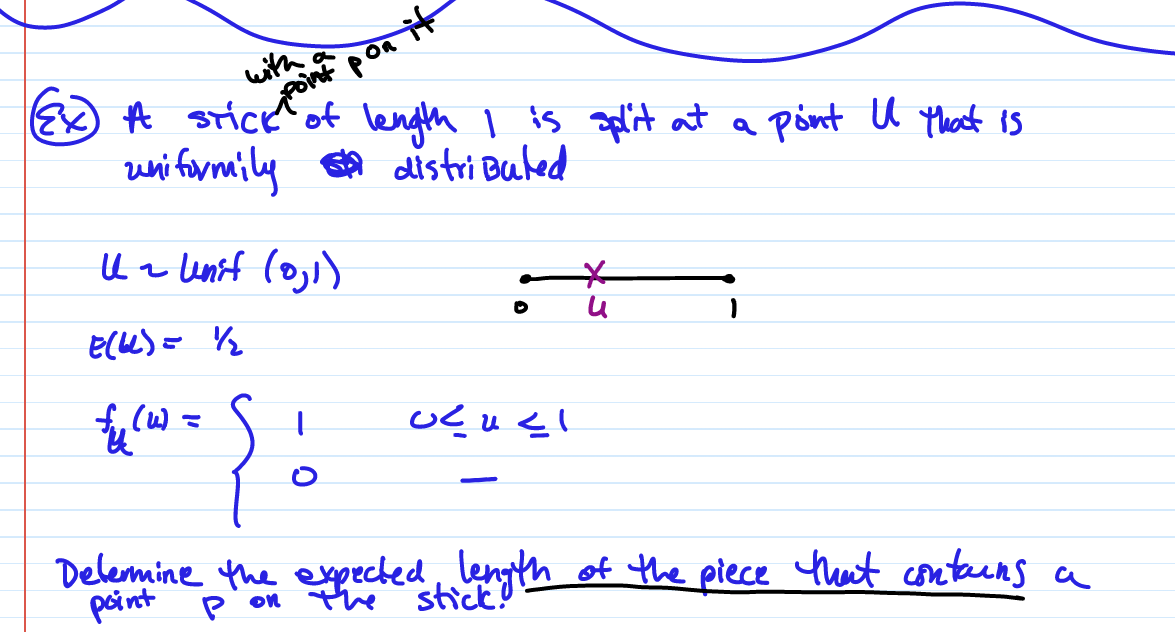 with a
point p on it
Ex A stick ^ of length 1 is split at a point U that is
uniformily distributed
U ~ Unif (0,1)
0 U 1
E(U) = 1/2
f_U(u) = { 1 0 ≤ u ≤ 1
0 —
Determine the expected length of the piece that contains a
point p on the stick.